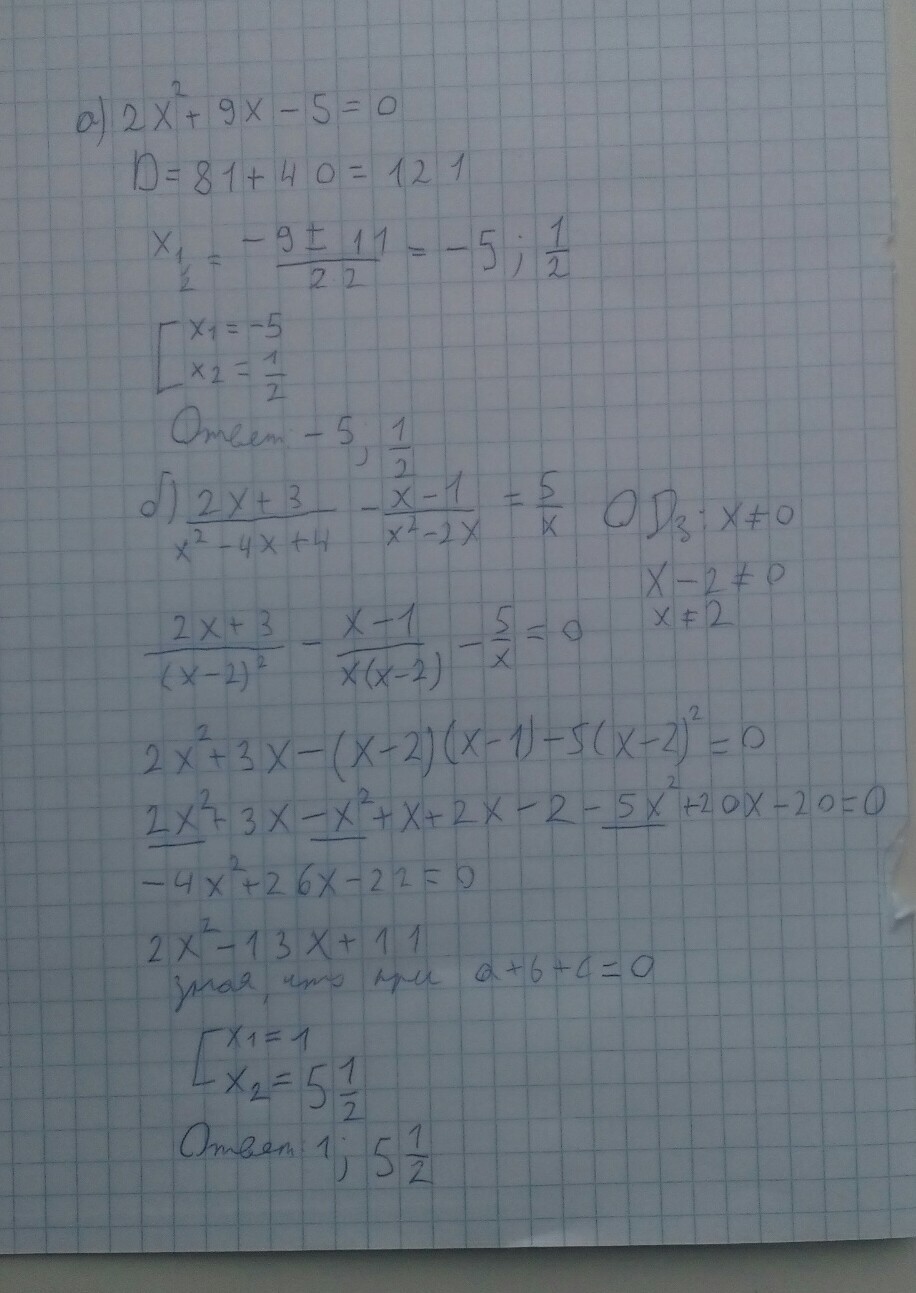 а) 2x² + 9x - 5 = 0
D = 81 + 40 = 121
x₁,₂ = (-9 ± 11)/22 = -5; 1/2
[ x₁ = -5
x₂ = 1/2
Ответ -5, 1/2
б) (2x + 3)/(x² - 4x + 4) - (x - 1)/(x² - 2x) = 5/x ОДЗ: x ≠ 0
x - 2 ≠ 0
x ≠ 2
(2x + 3)/(x - 2)² - (x - 1)/(x(x - 2)) - 5/x = 0
2x² + 3x - (x - 2)(x - 1) - 5(x - 2)² = 0
2x² + 3x - x² + x + 2x - 2 - 5x² + 20x - 20 = 0
-4x² + 26x - 22 = 0
2x² - 13x + 11
зная, что при a + b + c = 0
[ x₁ = 1
x₂ = 5 1/2
Ответ 1; 5 1/2